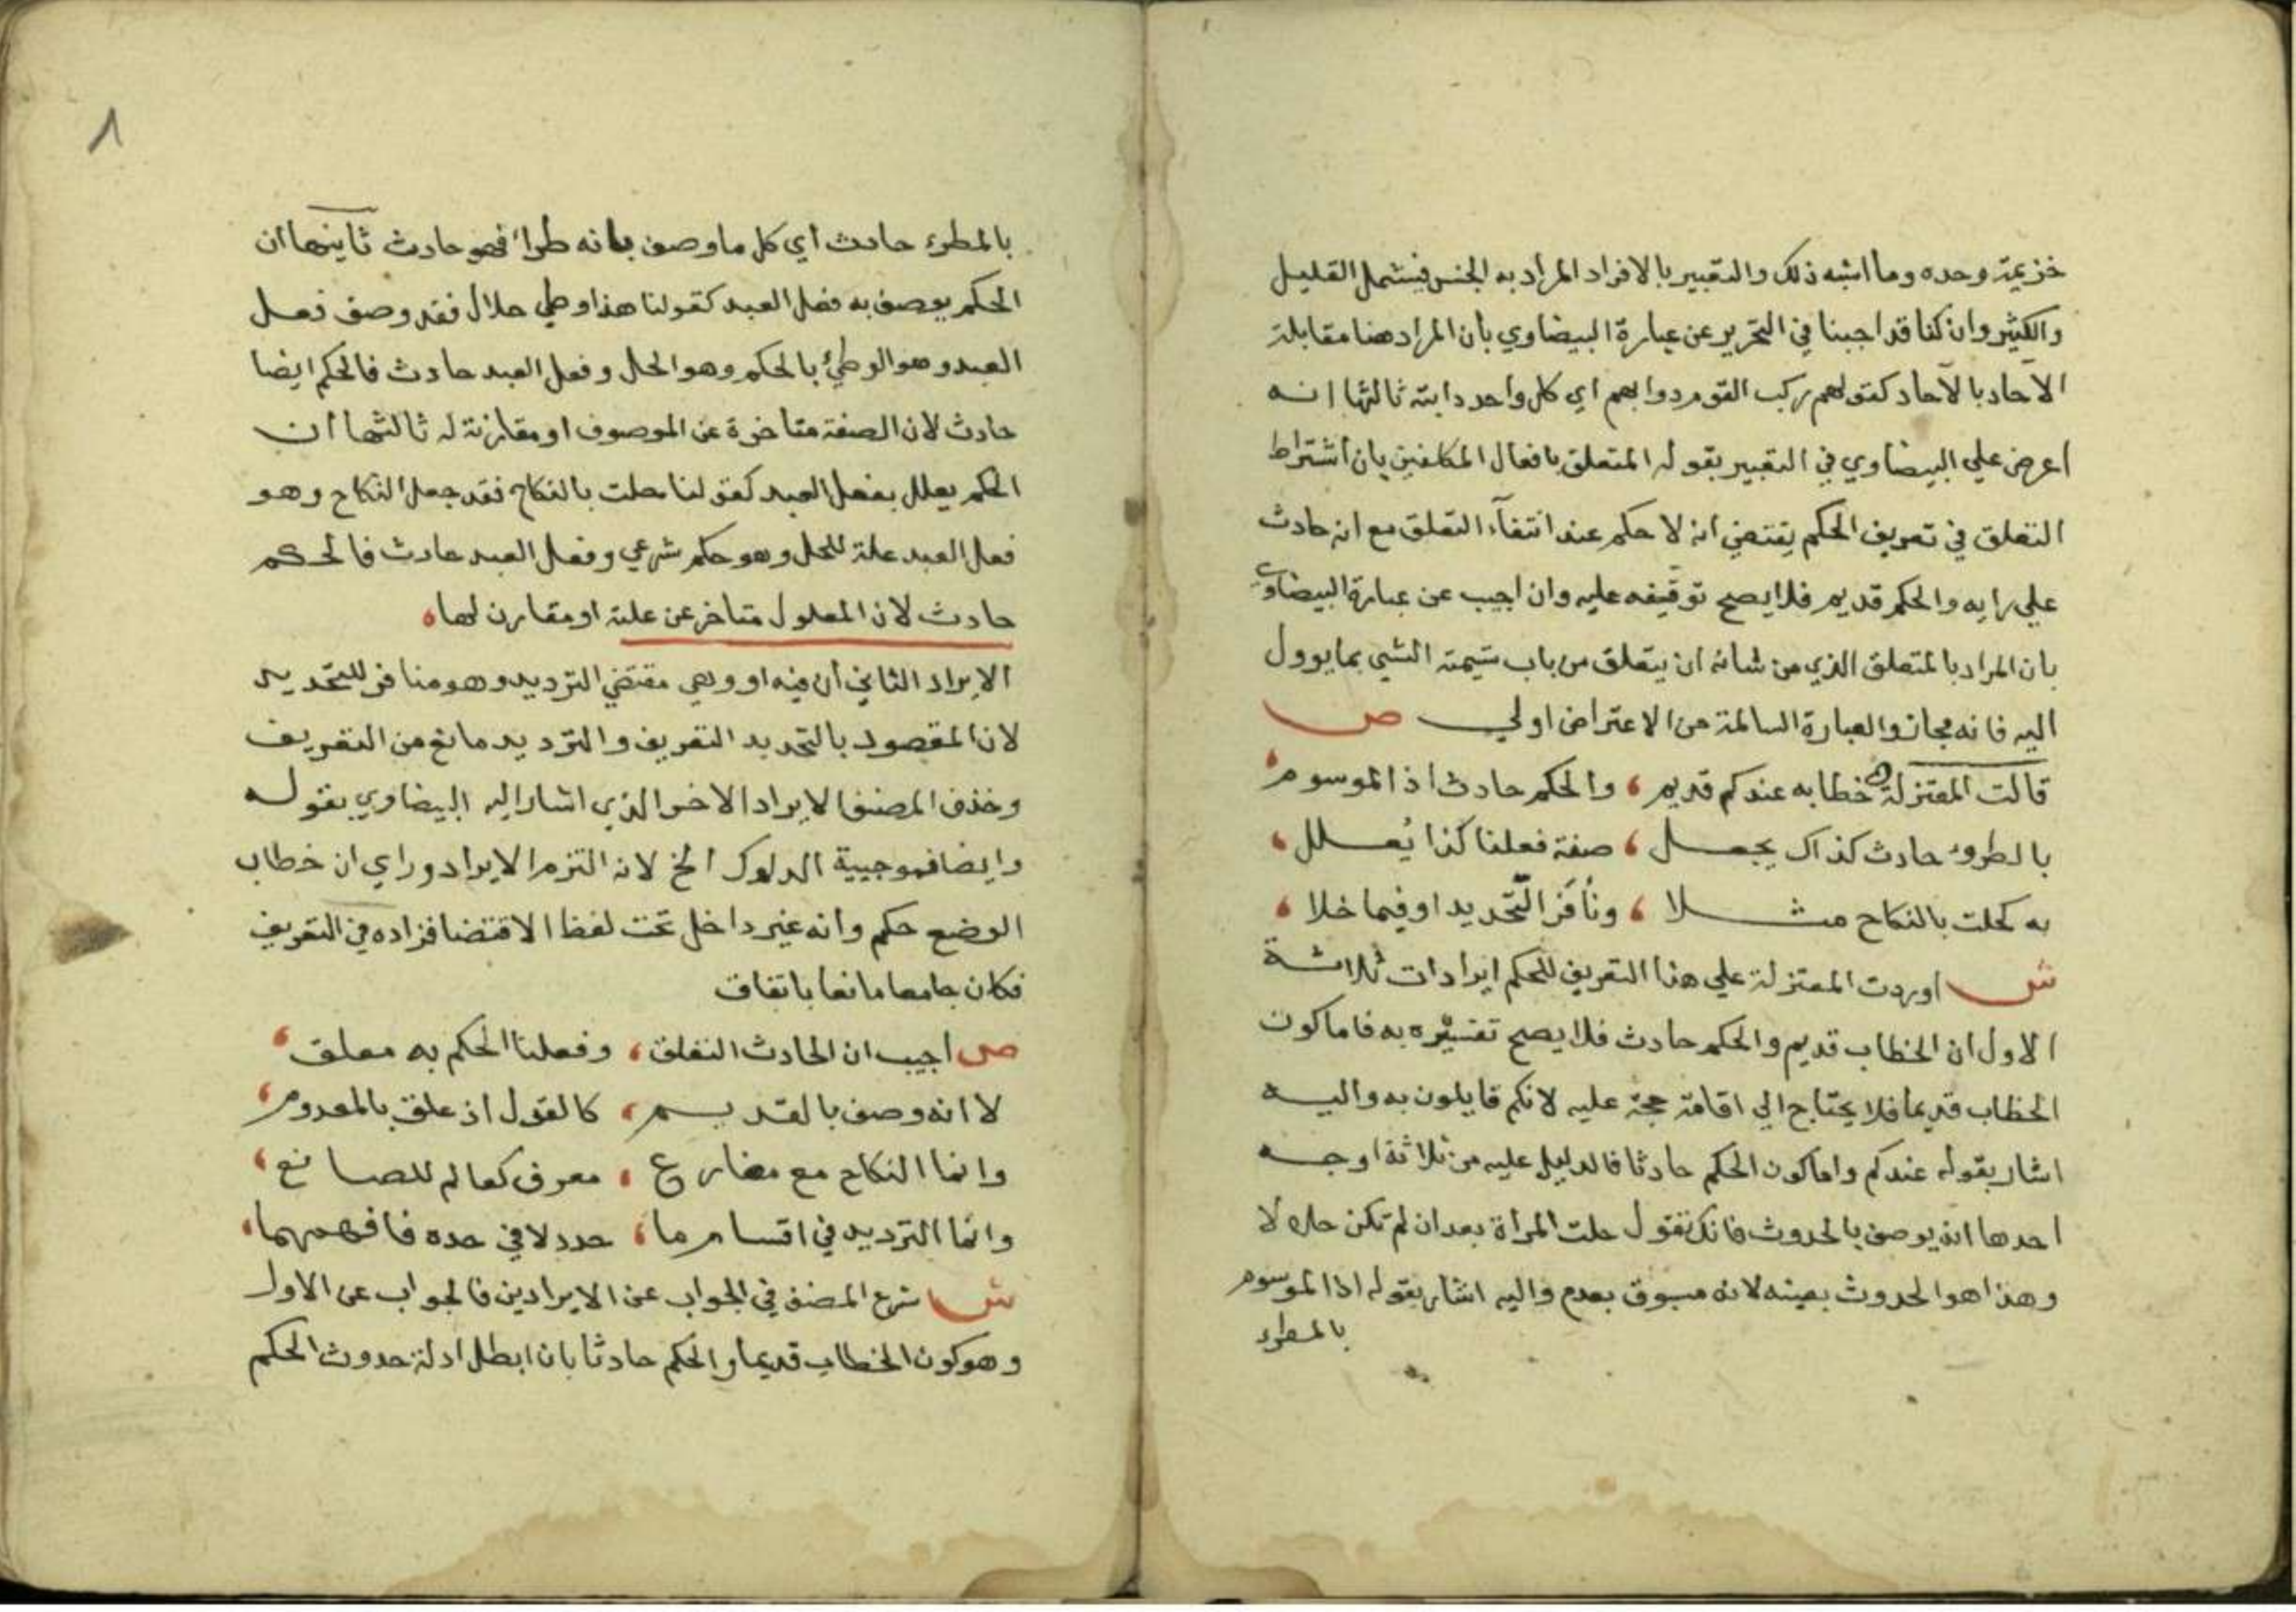 خزيمة وحده وما اشبه ذلك والتعبير بالافراد المراد به الجنس فيشمل القليل
والكثير وان كنا قد اجبنا في التحرير عن عبارة البيضاوي بأن المراد هنا مقابلة
الآحاد بالآحاد كقولهم ركب القوم دوابهم اي كل واحد دابته ثالثها انه
اعرض علي البيضاوي في التعبير بقوله المتعلق بافعال المكلفين بان اشتراط
التعلق في تعريف الحكم يقتضي انه لا حكم عند انتفآء التعلق مع انه حادث
علي رايه والحكم قديم فلا يصح توقيفه عليه وان اجيب عن عبارة البيضاوي
بان المراد بالمتعلق الذي من شانه ان يتعلق من باب تسمية الشي بما يوول
اليه فانه مجاز والعبارة السالمة من الاعتراض اولي ص
قالت المعتزلة خطابه عندكم قديم ، والحكم حادث اذ الموسوم
بالطروء حادث كذاك يجعل ، صفة فعلنا كذا يُعلل ،
به كحلت بالنكاح مثلا ، ونافَرَ التّحديد او فيما خلا ،
ش اوردت المعتزلة علي هذا التعريف للحكم ايرادات ثلاثة
الاول ان الخطاب قديم والحكم حادث فلا يصح تفسيره به فاما كون
الخطاب قديما فلا يحتاج الي اقامة حجة عليه لانكم قايلون به واليه
اشار بقوله عندكم واما كون الحكم حادثا فالدليل عليه من ثلاثة اوجه
احدها انه يوصف بالحدوث فانك تقول حلت المرأة بعد ان لم تكن حلالا
وهذا هو الحدوث بعينه لانه مسبوق بعدم واليه اشار بقوله اذا الموسوم
بالمطرء
٨
بالمطرء حادث أي كل ما وصف بانه طراء فهو حادث ثانيها ان
الحكم يوصف به فعل العبد كقولنا هذا وطي حلال فقد وصف فعل
العبد وهو الوطئ بالحكم وهو الحل وفعل العبد حادث فالحكم ايضا
حادث لان الصفة متاخرة عن الموصوف او مقارنة له ثالثها أن
الحكم يعلل بفعل العبد كقولنا حلت بالنكاح فقد جعل النكاح وهو
فعل العبد علة للحل وهو حكم شرعي وفعل العبد حادث فالحكم
حادث لان المعلول متاخر عن علته او مقارن لها
الايراد الثاني أن فيه او وهي مقتضي الترديد وهو مناف للتحديد
لان المقصود بالتحديد التعريف والترديد مانع من التعريف
وحذف المصنف الايراد الاخر الذي اشار اليه البيضاوي بقوله
وايضا فموجبية الدلوك الخ لانه التزم الايراد وراي ان خطاب
الوضع حكم وانه غير داخل تحت لفظ الاقتضا فزاده في التعريف
فكان جامعا مانعا باتفاق
ص أجيب ان الحادث التعلق ، وفعلنا الحكم به معلق ،
لا انه وصف بالقديم ، كالقول اذ علق بالمعدوم ،
وانما النكاح مع مضارع ، معرف كعالم للصانع ،
وانّما الترديد في اقسام ما ، حدد لا في حده فافهمهما ،
ش شرع المصنف في الجواب عن الايرادين فالجواب عن الاول
وهو كون الخطاب قديما والحكم حادثا بان ابطل ادلة حدوث الحكم